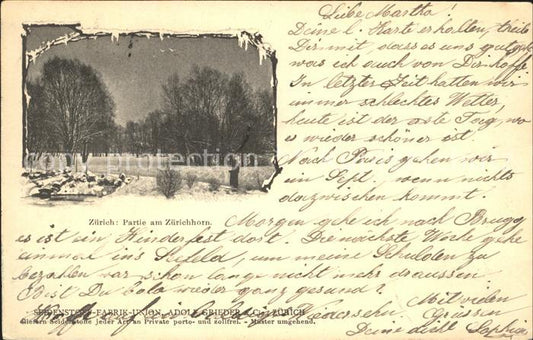 Liebe Martha!
Deine l. Karte erhalten, teile
Dir mit, dass es uns gut geht
was ich auch von Dir hoffe
In letzter Zeit hatten wir
immer schlechtes Wetter,
heute ist der erste Tag, wo
es wieder schöner ist.
Nach Paris gehen wir
im Sept., wenn nichts
dazwischen kommt.
Zürich: Partie am Zürichhorn.
Morgen gehe ich nach Brugg
es ist ein Kinderfest dort. Die nächste Woche gehe
einmal ins, um meine Schulden zu
bezahlen war schon lange nicht mehr draussen
Bist Du bald wieder ganz gesund?
SEIDENSTOFF-FABRIK-UNION, ADOLF GRIEDER & Cie, ZÜRICH
liefern Seidenstoffe jeder Art an Private porto- und zollfrei. - Muster umgehend.
Hoffe auf ein baldiges Wiedersehn.
Mit vielen
Grüssen
Deine Sophie